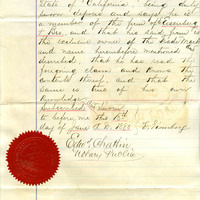 State of California being duly
sworn deposes and says he is
a member of the firm of
& Bro, and that his said firm is
the exclusive owner of the Trade Mark
and name hereinbefore mentioned and
described, that he has read the
foregoing claim and knows the
contents thereof, and that the
same is true of his own
knowledge
Subscribed & Sworn
to before me this
day of June A.D. 188
Notary Public